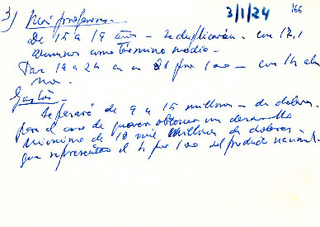 3/1/24 166
3) Mas profesores.-
De 15 a 19 años - se duplicarán - con 17,1
alumnos como término medio -
Para 19 a 24 en un 21 por 100 - con 14 alum
nos.
Gastos -
Se pasará de 9 a 15 millones - de dolares.
para el caso de querer obtener un desarrollo
mínimo de 10 mil millones de dolares -
que representa el 4 por 100 del producto nacional.